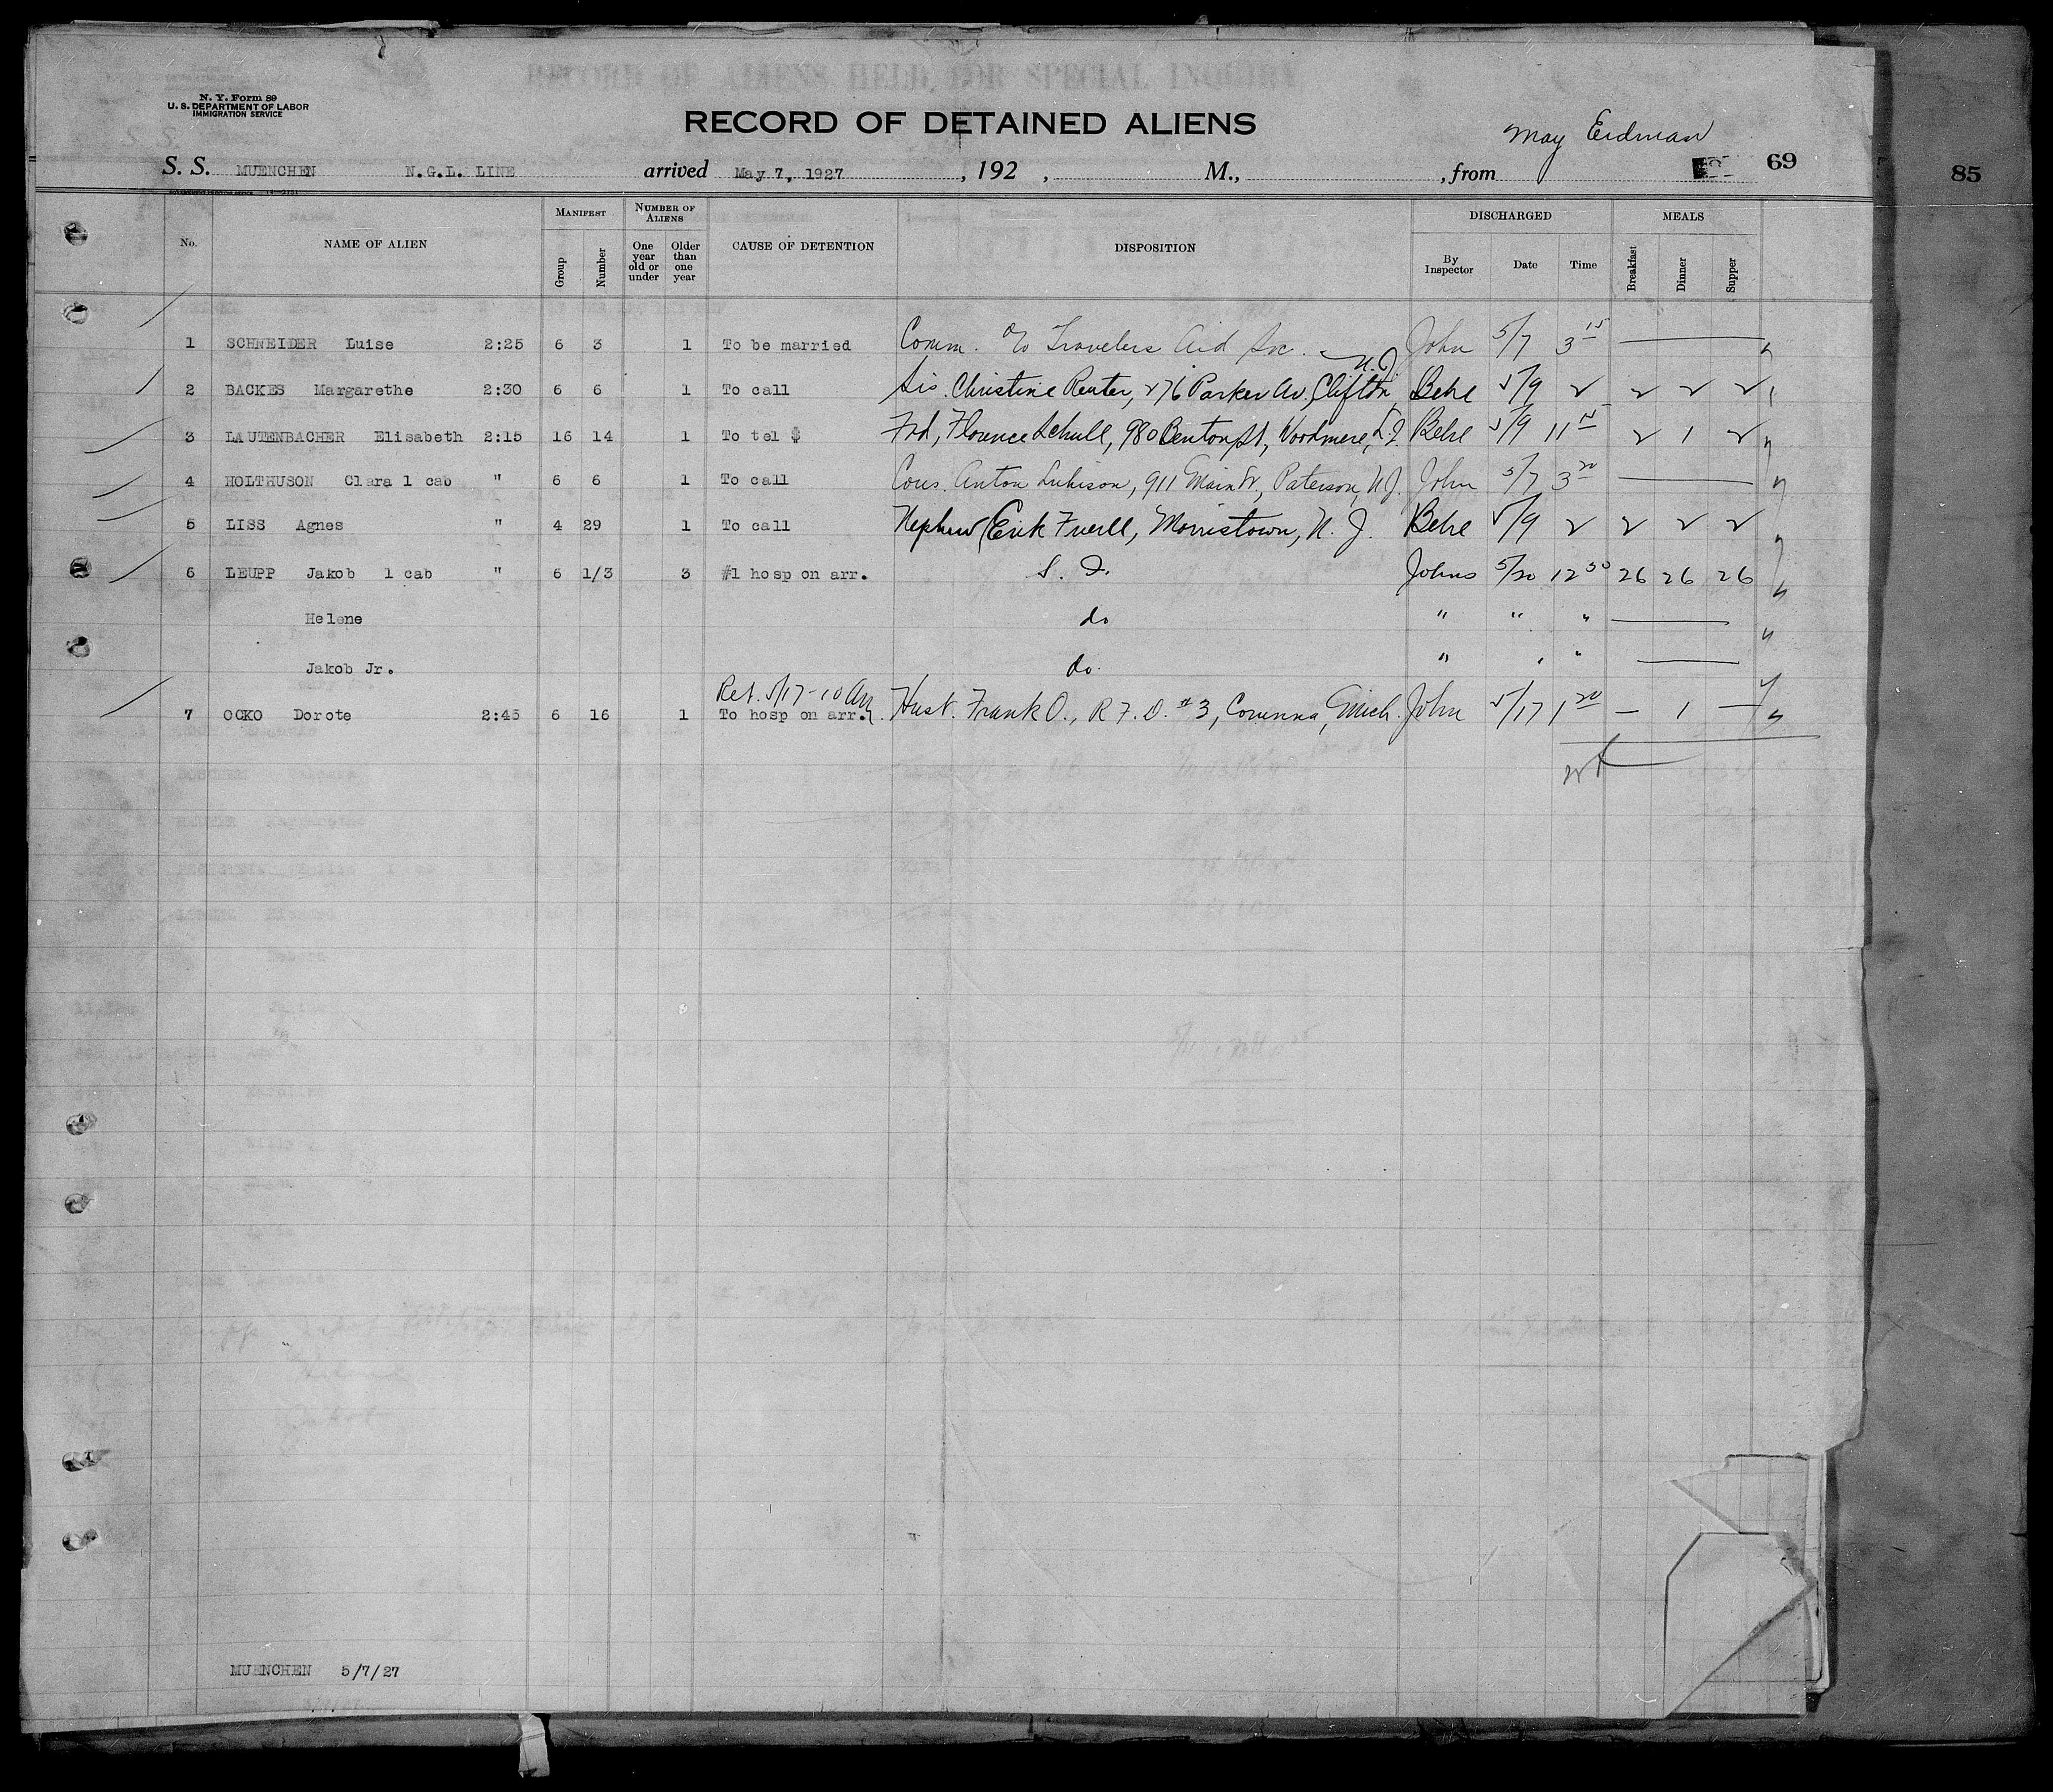 N. Y. Form 89
U. S. DEPARTMENT OF LABOR
IMMIGRATION SERVICE
RECORD OF DETAINED ALIENS
May Erdman
S. S. MUENCHEN N.G.L. LINE arrived May 7, 1927 , 192 , M., , from 69
85
No. NAME OF ALIEN MANIFEST Group Number NUMBER OF ALIENS One year old or under Older than one year CAUSE OF DETENTION DISPOSITION DISCHARGED By Inspector Date Time MEALS Breakfast Dinner Supper
1 SCHNEIDER Luise 2:25 6 3 1 To be married Comm. c/o Travelers Aid Soc. John 5/7 3 15
2 BACKES Margarethe 2:30 6 6 1 To call Sis. Christine Reuter, 276 Parker Av. Clifton, N.J. Behe 5/9 2 2 2 2
3 LAUTENBACHER Elisabeth 2:15 16 14 1 To tel $ Frd, Florence Schull, 980 Benton St, Woodmere, L.I. Behe 5/9 11 2 1 2
4 HOLTHUSON Clara 1 cab " 6 6 1 To call Cous. Anton 911 Main St, Paterson, N.J. John 5/7 3 20
5 LISS Agnes " 4 29 1 To call Nephew Erik Morristown, N. J. Behe 5/9 2 2 2 2
6 LEUPP Jakob 1 cab " 6 1/3 3 #1 hosp on arr. S. I. Johns 5/20 12 50 26 26 26
Helene do " " "
Jakob Jr. do. " " "
Ret. 5/17-10 Am
7 OCKO Dorote 2:45 6 16 1 To hosp on arr. Husb. Frank O., R.F.D. #3, Corunna, Mich. John 5/17 1 20 — 1 —
MUENCHEN 5/7/27